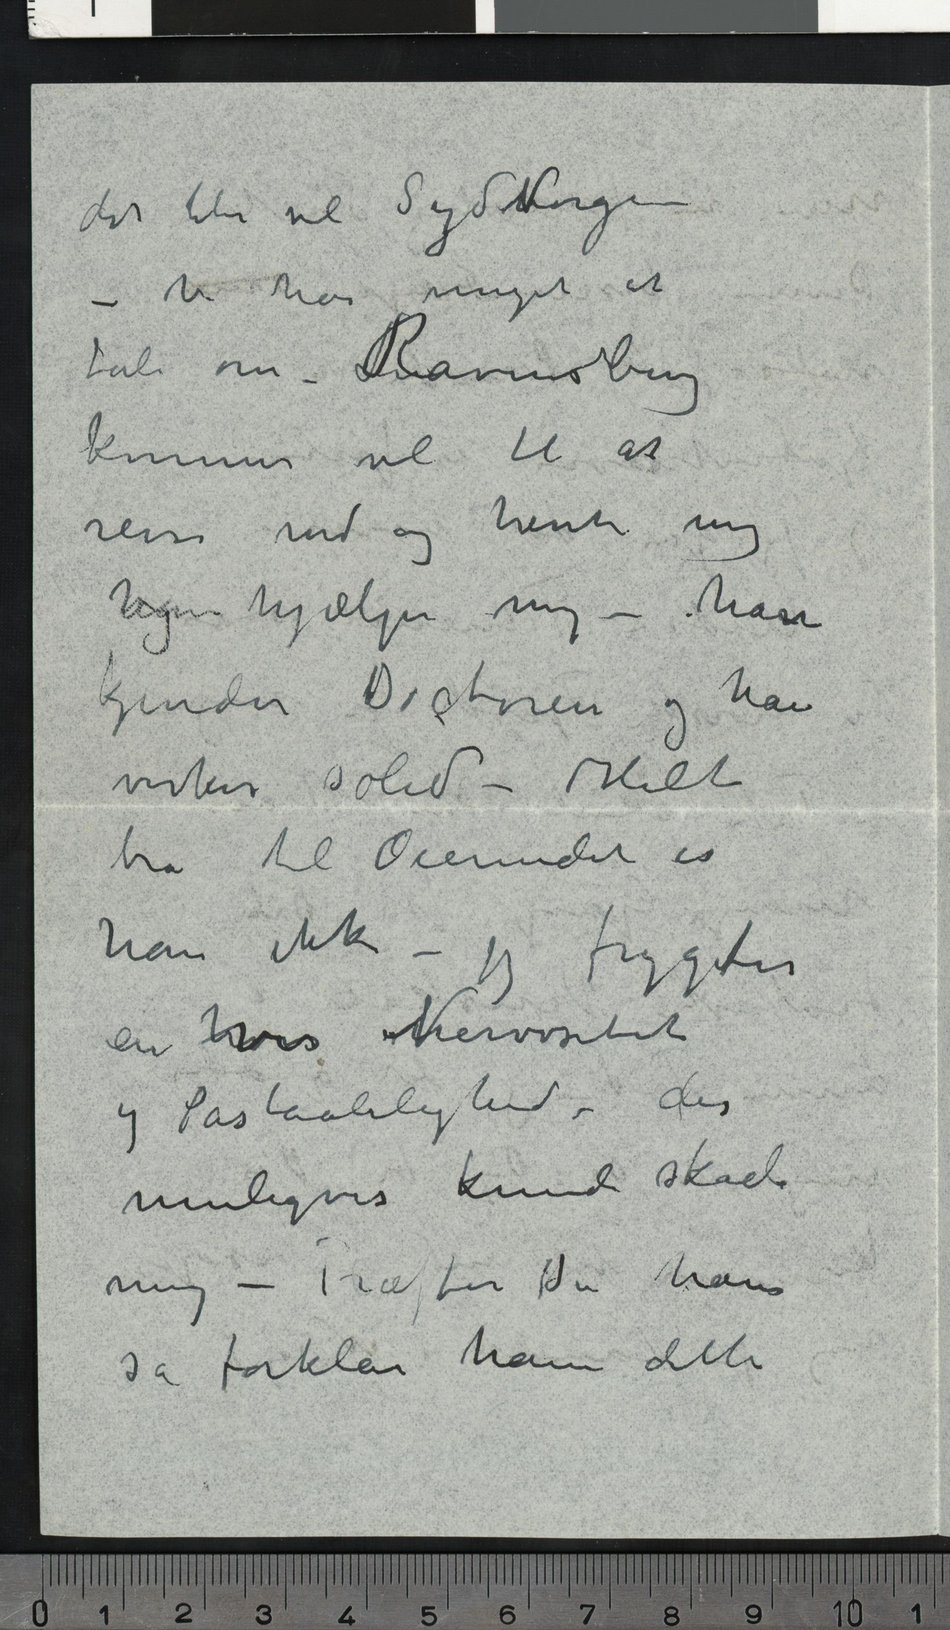 det blir vel SydNorge
– Vi har meget at
tale om – Ravensberg
kommer vel til at
reise ned og hente mig
hjælpe mig – han
kjender Doctoren og han
virker solid – Helt
bra til Øiemedet er
han ikke – jeg frygter
en hvis Nervøsitet
og Paståalelighed – der
muligvis kunde skade
mig – Træffer Du ham
så forklar ham dette